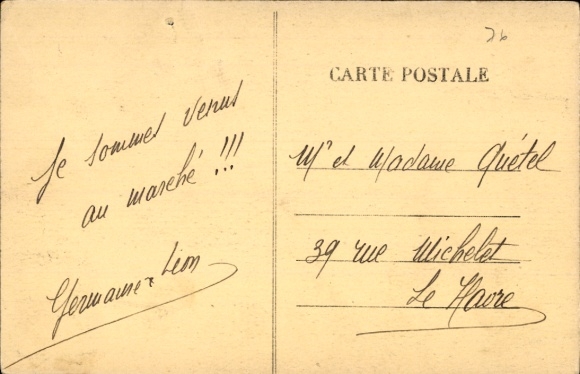 Je sommes venus
au marché !!!
Germaine & Léon
26
CARTE POSTALE
Mr et Madame Quétel
39 rue Michelet
Le Havre